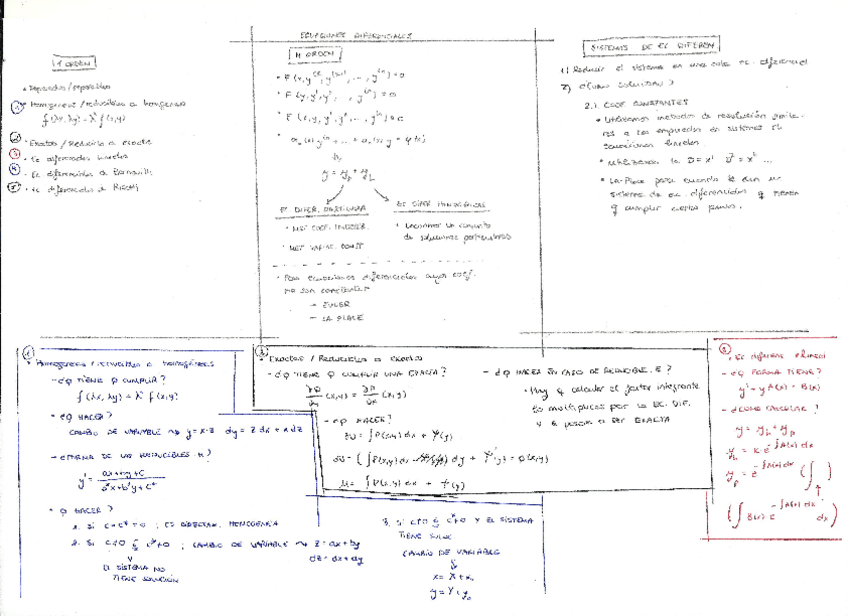 ECUACIONES DIFERENCIALES
1er ORDEN
• Separadas / separables
① • Homogeneas / reducibles a homogeneas
f(λx, λy) = λ^n f(x,y)
② • Exactas / Reducibles a exactas
③ • Ec diferenciales lineales
④ • Ec diferenciales de Bernoulli
⑤ • Ec diferenciales de Riccati
N ORDEN
a_n(x) y^(n) + ... + a_0(x) y = φ(x)
y = y_p + y_h
Ec DIFER. PARTICULAR
• MET COEF. INDETER.
• MET VARIAC. CONST
EC DIFER HOMOGENEAS
• Encontrar un conjunto
de soluciones particulares
• Para ecuaciones diferenciales cuyos coef.
no son constantes
→ EULER
→ LA PLACE
SISTEMAS DE EC DIFEREN
1) Reducir el sistema en una sola ec. diferencial
2) ¿Cómo solucionar?
2.1. COEF CONSTANTES
• Utilizamos metodos de resolución simila-
res a los empleados en sistemas de
ecuaciones lineales.
• Utilizaremos la D = x' D² = x'' ...
• La-Place para cuando te dan un
sistema de ec. diferenciales q tienen
q cumplir ciertos puntos.
① • Homogeneas / reducibles a homogéneas
- ¿Q TIENE Q CUMPLIR?
f(λx, λy) = λ^n f(x,y)
- ¿Q HACER?
CAMBIO DE VARIABLE → y = x·z dy = z dx + x dz
- ¿FORMA DE LAS REDUCIBLES A H?
y' = (ax + by + c) / (a'x + b'y + c')
• Q HACER?
1. Si c = c' = 0 ; ES DIRECTAM. HOMOGENEA
2. Si c≠0 ó c'≠0 ; CAMBIO DE VARIABLE → z = ax + by
dz = adx + bdy
EL SISTEMA NO
TIENE SOLUCIÓN
3. Si c≠0 ó c'≠0 Y EL SISTEMA
TIENE SOLUC
CAMBIO DE VARIABLE
x = X + x₀
y = Y + y₀
② Exactas / Reducibles a exactas
- ¿Q TIENE Q CUMPLIR UNA EXACTA?
- ¿Q HACER?
- ¿Q HACER EN CASO DE REDUCIBLE. E?
• Hay q calcular el factor integrante
lo multiplicas por la EC. DIF.
y a pasar a SER EXACTA
③ • Ec diferenc lineal
- ¿Q FORMA TIENE?
y' + y A(x) = B(x)
- ¿COMO CALCULAR?
y = y_h + y_p
y_h = k · e^(-∫A(x) dx)